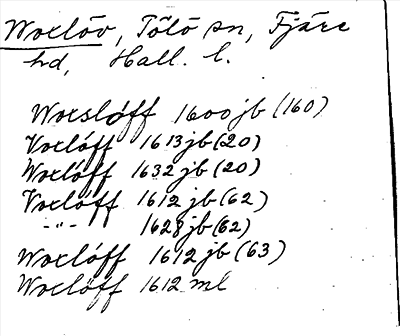 Woxlöv, Tölö sn, Fjäre
hd, Hall. l.
Woxslöff 1600 jb (160)
Voxlöff 1613 jb (20)
Woxlöff 1632 jb (20)
Voxlöff 1612 jb (62)
-"- 1628 jb (62)
Woxlöff 1612 jb (63)
Woxlöff 1612 ml